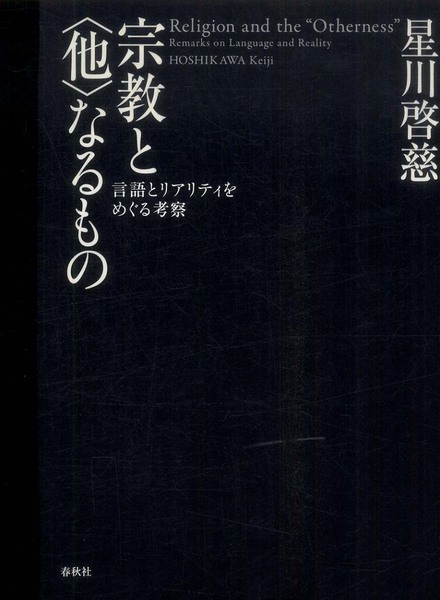 星川啓慈
Religion and the “Otherness”
Remarks on Language and Reality
HOSHIKAWA Keiji
宗教と
〈他〉なるもの
言語とリアリティを
めぐる考察
春秋社